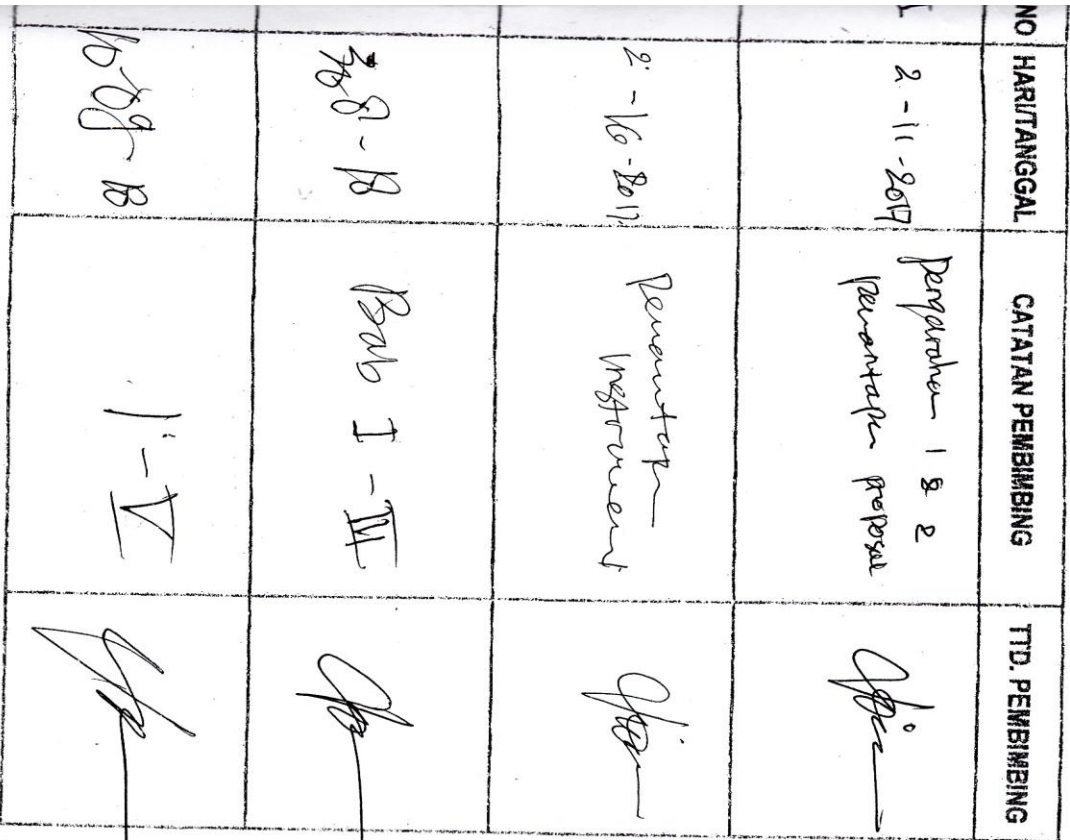 NO HARI/TANGGAL CATATAN PEMBIMBING TTD. PEMBIMBING
2 - 11 - 2017 Pengarahan 1 & 2
pemantapan proposal
2 - 16 - 2017 Pemantapan
instrument
Bab I - III
I - V